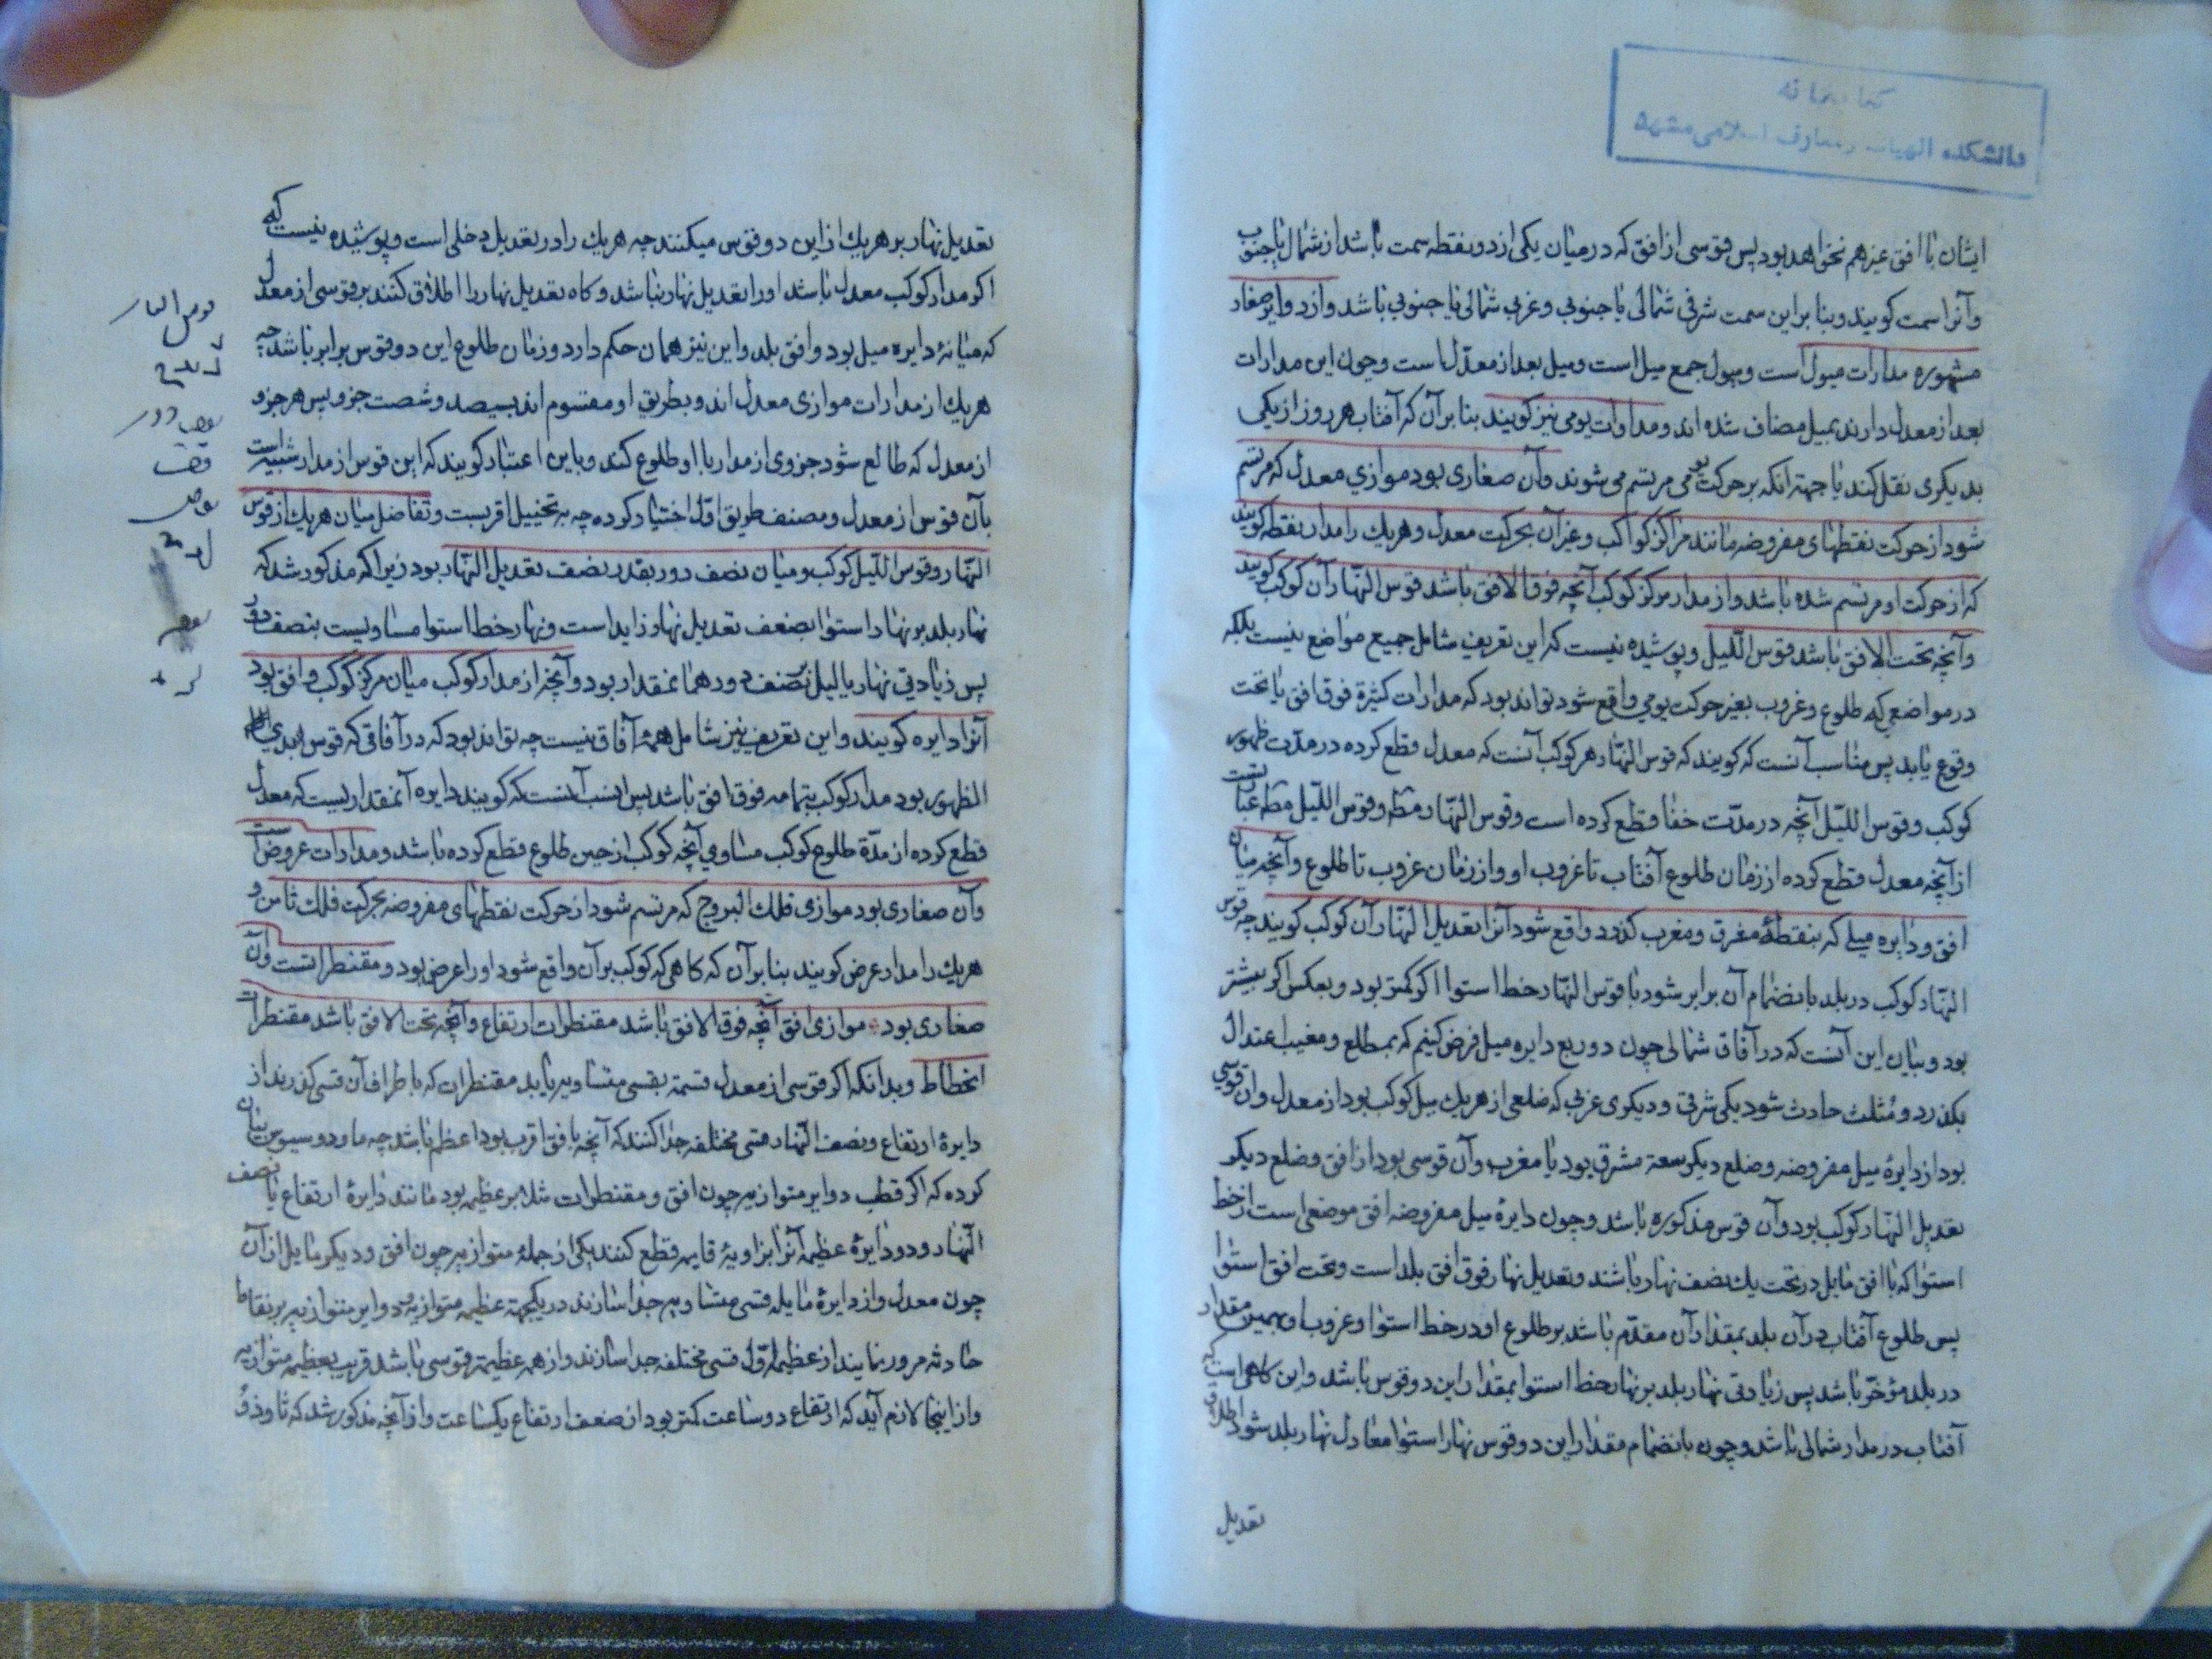 کتابخانه
دانشکده الهیات و معارف اسلامی مشهد
ایشان با افق غیرهم نخواهد بود پس قوسی از افق که در میان یکی از دو نقطه سمت باشد از شمال یا جنوب
وآنرا سمت کویند وبنا براین سمت شرقی شمالی یا جنوبی وغربی شمالی یا جنوبی باشد واز دوایر صغار
مشهوره مدارات میول است ومیول جمع میل است ومیل بعد از معدل است وچون این مدارات
بعد از معدل دارند بمیل مضاف شده اند ومدارات یومی نیز کویند بنا برآن که آفتاب هر روز از یکی
بدیکری نقل کند یا جهة انکه برحرکت یومی مرتسم می شوند وآن صغاری بود موازی معدل که مرتسم
شود از حرکت نقطهای مفروضه مانند مراکز کواکب وغیرآن بحرکت معدل وهریك را مدار نقطه کویند
که از حرکت او مرتسم شده باشد واز مدار مرکز کوکب آنچه فوق الافق باشد قوس النهار آن کوکب کویند
وآنچه تحت الافق باشد قوس اللیل وپوشیده نیست که این تعریف شامل جمیع مواضع نیست بلکه
در مواضعی که طلوع وغروب بغیر حرکت یومی واقع شود تواند بود که مدارات کثیرة فوق افق یا تحت
وقوع یابد پس مناسب آنست که کویند که قوس النهار هر کوکب آنست که معدل قطع کرده در مدت ظهور
کوکب وقوس اللیل آنچه در مدت خفا قطع کرده است وقوس النهار مطه وقوس اللیل مطه عبارتست
از آنچه معدل قطع کرده از زمان طلوع آفتاب تا غروب او واز زمان غروب تا طلوع وآنچه میان
افق ودایره میلی که بنقطهٔ مشرق ومغرب کذرد واقع شود آنرا تعدیل النهار آن کوکب کویند چه قوس
النهار کوکب در بلد بانضمام آن برابر شود با قوس النهار خط استوا اکر کمتر بود وبعکس اکر بیشتر
بود وبیان این آنست که در آفاق شمالی چون دو ربع دایره میل فرض کنیم که بمطلع ومغیب اعتدال
بکذرد دو مثلث حادث شود یکی شرقی ودیکری غربی که ضلعی از هریك میل کوکب بود از معدل وآن قوسی
بود از دایرهٔ میل مفروضه وضلع دیکر سعة مشرق بود یا مغرب وآن قوسی بود از افق وضلع دیکر
تعدیل النهار کوکب بود وآن قوس مذکوره باشد وچون دایرهٔ میل مفروضه افق موضعی است از خط
استوا که با افق مایل در تحت یك نصف نهار باشند وتعدیل نهار فوق افق بلد است وتحت افق استوا
پس طلوع آفتاب در آن بلد بمقدار آن مقدم باشد بر طلوع او در خط استوا وغروب او بهمین مقدار
در بلد مؤخر باشد پس زیادتی نهار بلد بر نهار خط استوا بمقدار این دو قوس باشد واین کاهی است که
آفتاب در مدار شمالی باشد وچون بانضمام مقدار این دو قوس نهار استوا معادل نهار بلد شود اطلاق
تعدیل
تعدیل نهار بر هریك از این دو قوس میکنند چه هریك را در تعدیل دخلی است وپوشیده نیست که
اکر مدار کوکب معدل باشد او را تعدیل نهار نباشد وکاه تعدیل نهار را اطلاق کنند بر قوسی از معدل
که میانهٔ دایره میل بود وافق بلد واین نیز همان حکم دارد وزمان طلوع این دو قوس برابر باشد چه
هریك از مدارات موازی معدل اند وبطریق او مقسوم اند بسیصد وشصت جزو پس هر جزو
از معدل که طالع شود جزوی از مدار با او طلوع کند وباین اعتبار کویند که این قوس از مدار شبیه است
بآن قوس از معدل ومصنف طریق اول اختیار کرده چه به تخییل اقربست وتفاضل میان هریك از قوس
النهار وقوس اللیل کوکب ومیان نصف دور بقدر نصف تعدیل النهار بود زیرا که مذکور شد که
نهار بلد بر نهار استوا بضعف تعدیل نهار زاید است ونهار خط استوا مساویست بنصف دور
پس زیادتی نهار یا لیل بر نصف دور همان مقدار بود وآنچه از مدار کوکب میان مرکز کوکب وافق بود
آنرا دایره کویند واین تعریف نیز شامل همهٔ آفاق نیست چه تواند بود که در آفاقی که قوس ابدی
الظهور بود مدار کوکب بتمامه فوق افق باشد پس انسب آنست که کویند دایره آنمقداریست که معدل
قطع کرده از مدة طلوع کوکب مساوی آنچه کوکب از حین طلوع قطع کرده باشد ومدارات عروض است
وآن صغاری بود موازی فلك البروج که مرتسم شود از حرکت نقطهای مفروضه بحرکت فلك ثامن و
هریك را مدار عرض کویند بنا برآن که کاهی که کوکب برآن واقع شود او را عرض بود ومقنطراتست وآن
صغاری بود موازی افق آنچه فوق الافق باشد مقنطرات ارتفاع وآنچه تحت الافق باشد مقنطرات
انحطاط وبدانکه اکر قوسی از معدل قسمة بقسی متساویه یابد مقنطران که باطراف آن قسی کذرند از
دایرهٔ ارتفاع ونصف النهار قسی مختلفه جدا کنند که آنچه بافق اقرب بود اعظم باشد چه ماودوسیوس بیان
کرده که اکر قطب دوایر متوازیه چون افق ومقنطرات شد بر عظیمه بود مانند دایرهٔ ارتفاع یا نصف
النهار ودو دایرهٔ عظیمه آنرا بزاویهٔ قایمه قطع کنند یکی از جملهٔ متوازیه چون افق ودیکر مایل از آن
چون معدل واز دایرهٔ مایله قسی متساویه جدا سازند در یکجهة عظیمه متوازیه ودوایر متوازیه بر نقاط
حادثه مرور نمایند از عظیمه اول قسی مختلفه جدا سازند واز همه عظیمتر قوسی باشد قریب بعظیمه متوازیه
واز اینجا لازم آید که ارتفاع دو ساعت کمتر بود از ضعف ارتفاع یکساعت واز آنچه مذکور شد که ثاوذو